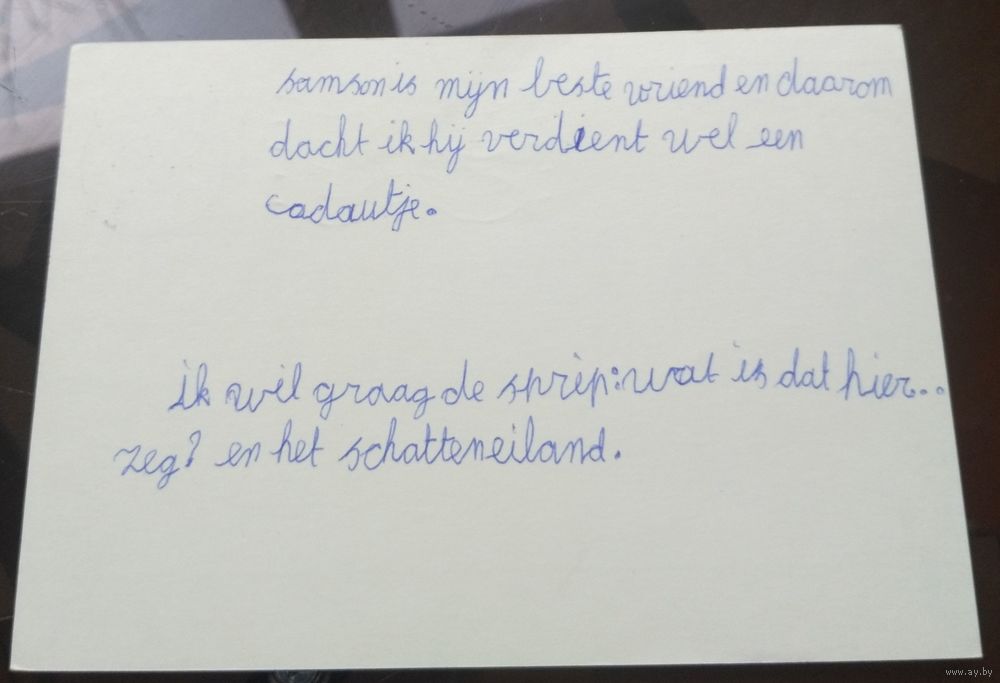 samson is mijn beste vriend en daarom
dacht ik hij verdient wel een
cadautje.
ik wil graag de sprip: wat is dat hier..
zeg? en het schatteneiland.
www.ay.by